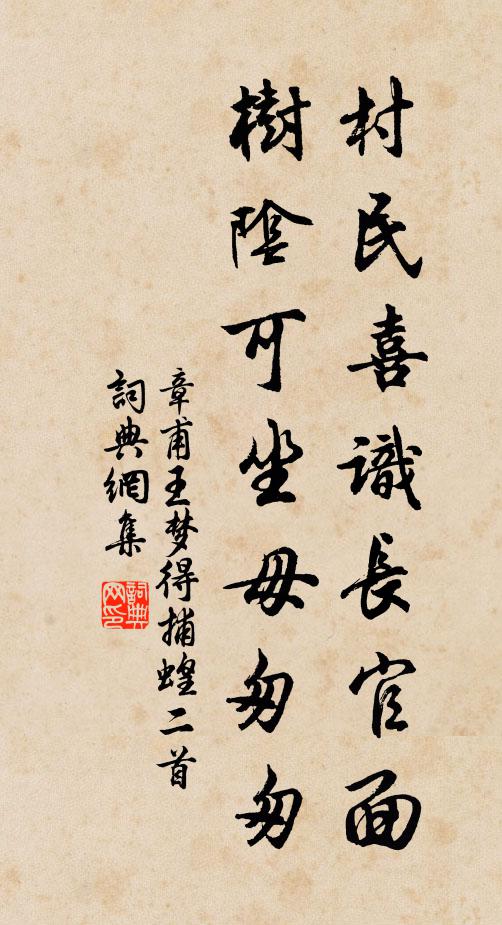 村民喜識長官面
樹陰可坐毋匆匆
章甫王梦得捕蝗二首
詞典網集
詞典网印